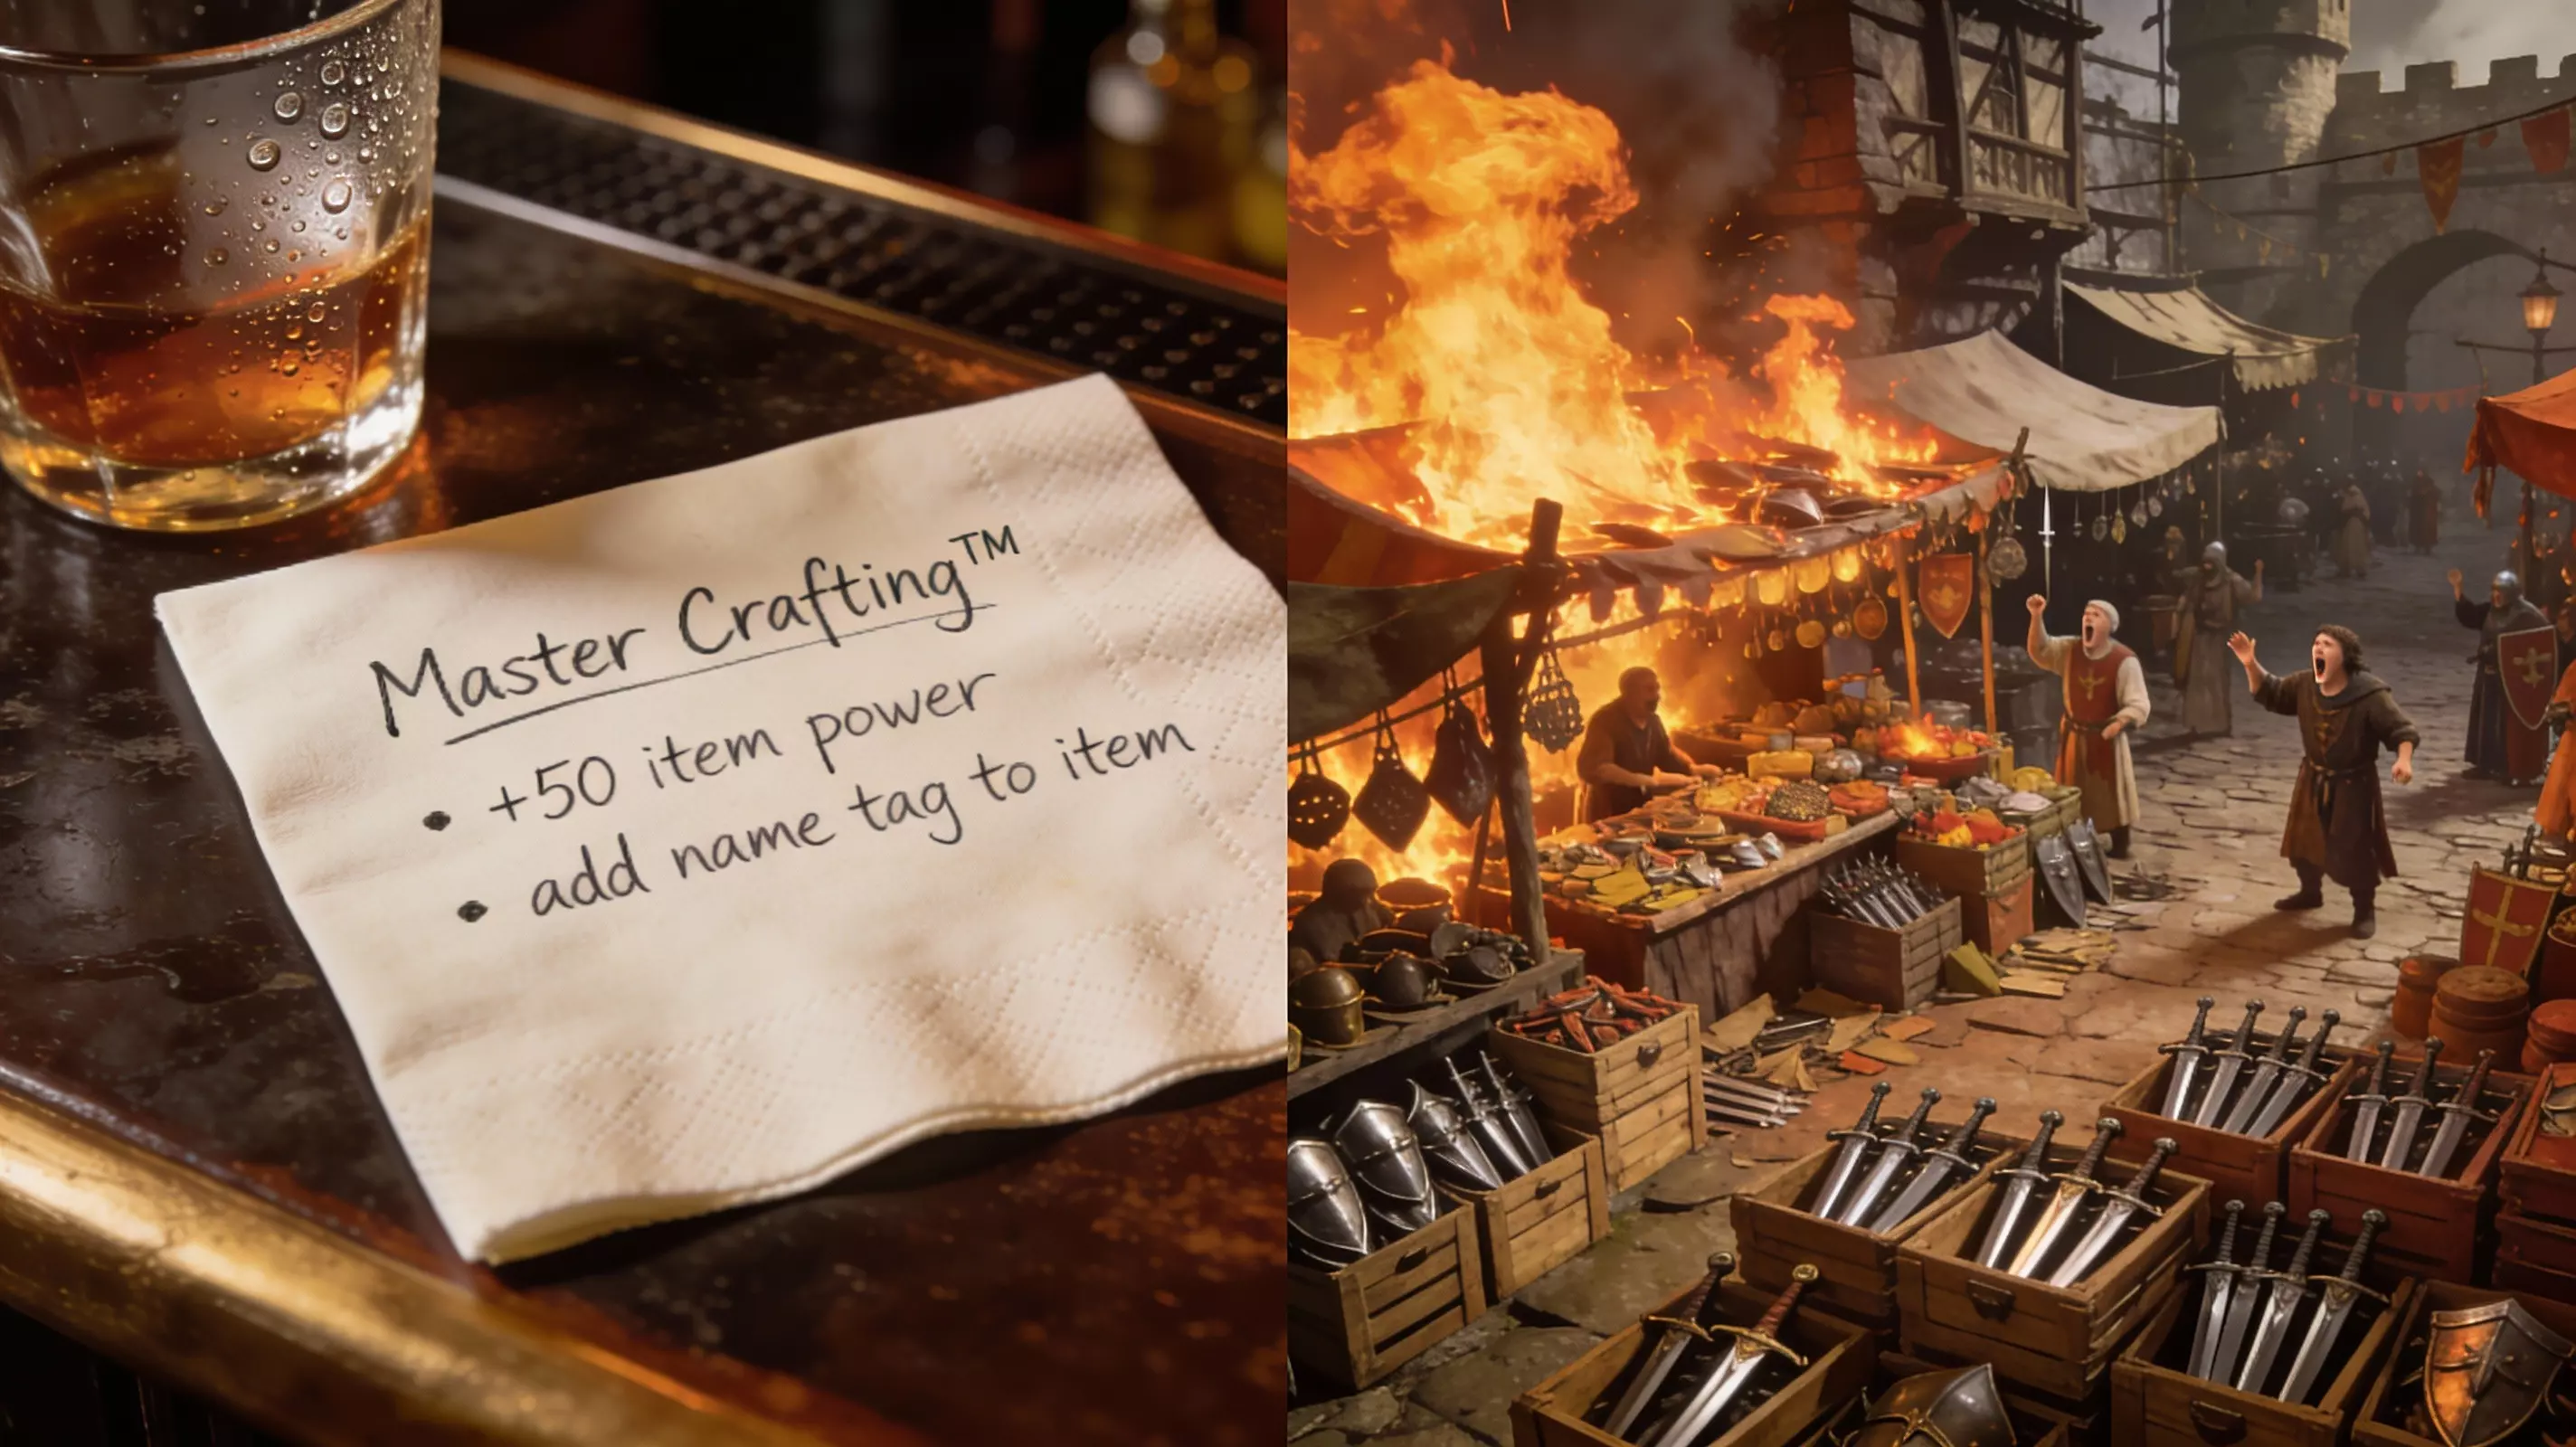 Master Crafting™
• +50 item power
• add name tag to item